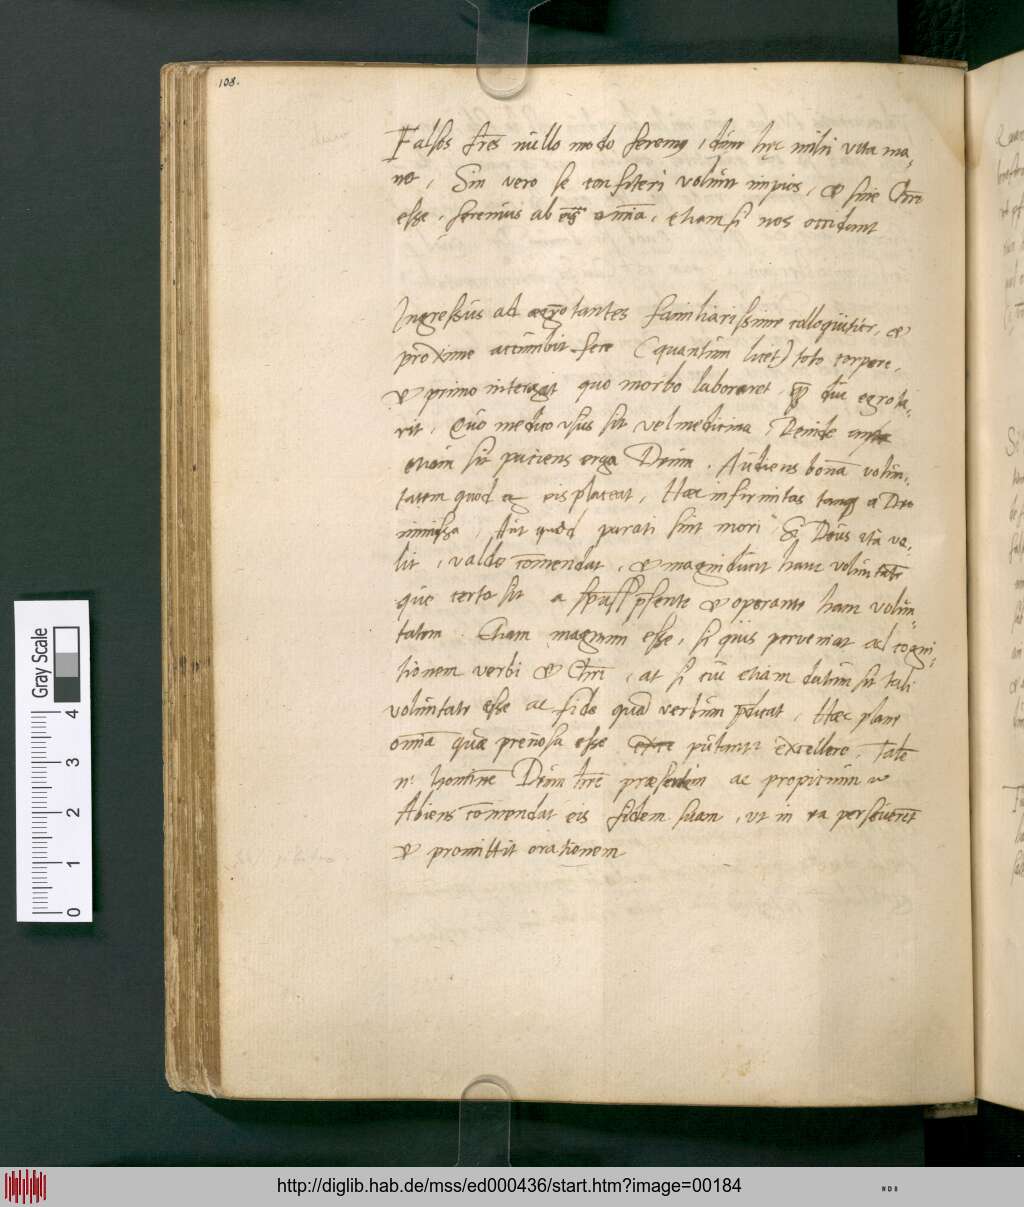 108.
Falsos frēs nullo modo feremꝰ, dūm hęc mihi vita ma,
net, Sin vero se confiteri volunt impios, et sine Chro
esse, feremus ab eis omnia, etiam si nos occidant
Ingressus ad ægrotantes familiarissime colloquitur, et
proxime accumbit fere (quantum licet) toto corpore,
et primo interogat quo morbo laboraret, qua̅ diu egrota,
rit, Quo medico usus sit, vel medicina, Deinde
etiam sit patiens erga Deum. Audiens bonā volun,
tatem quod ea eis placeat, Hæc infirmitas tanq̄ a Deo
inmissa, Aut quod parati sint mori Si Deus ita ve,
lit, valde comendat, et magni ducit hanc voluntatē
que certo sit a spū s prsente et operante hanc volun
tatem. Etiam magnum esse, si quis perveniat ad cogni,
tionem verbi et Chri, at si cui etiam datum sit tali
voluntate esse ac fide quā verbum p̄dicat, Hæc plane
omīa quæ preciosa esse putantur excellere, Talē
n. hominē Deum hrē præsentem ac propitium et
Abiens comendat eis fidem suam, ut in ea perseverēt
et promittit orationem
Gray Scale
4
3
2
1
0
http://diglib.hab.de/mss/ed000436/start.htm?image=00184